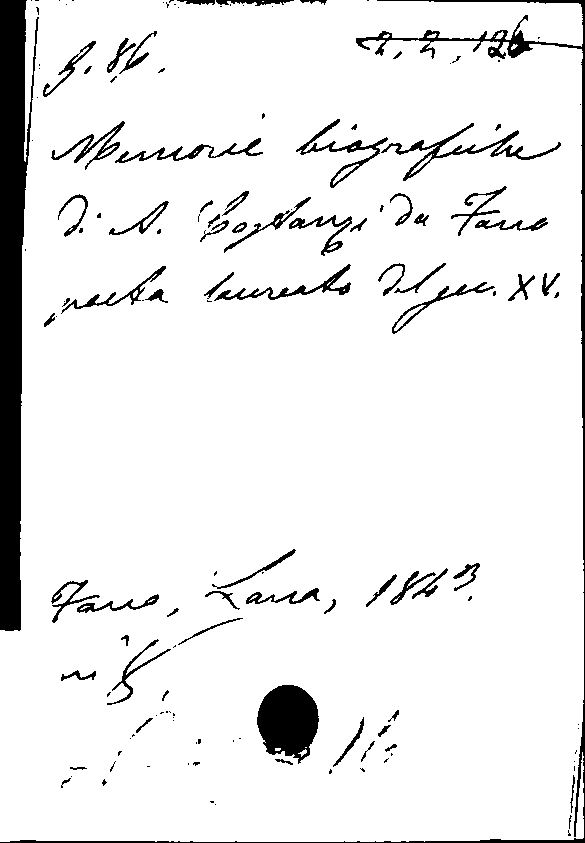 B. 86.
2, 2, 126
Memorie biografiche
di A. Costanzi da Fano
poeta laureato del sec. XV.
Fano, Lana, 1843.
in 8.